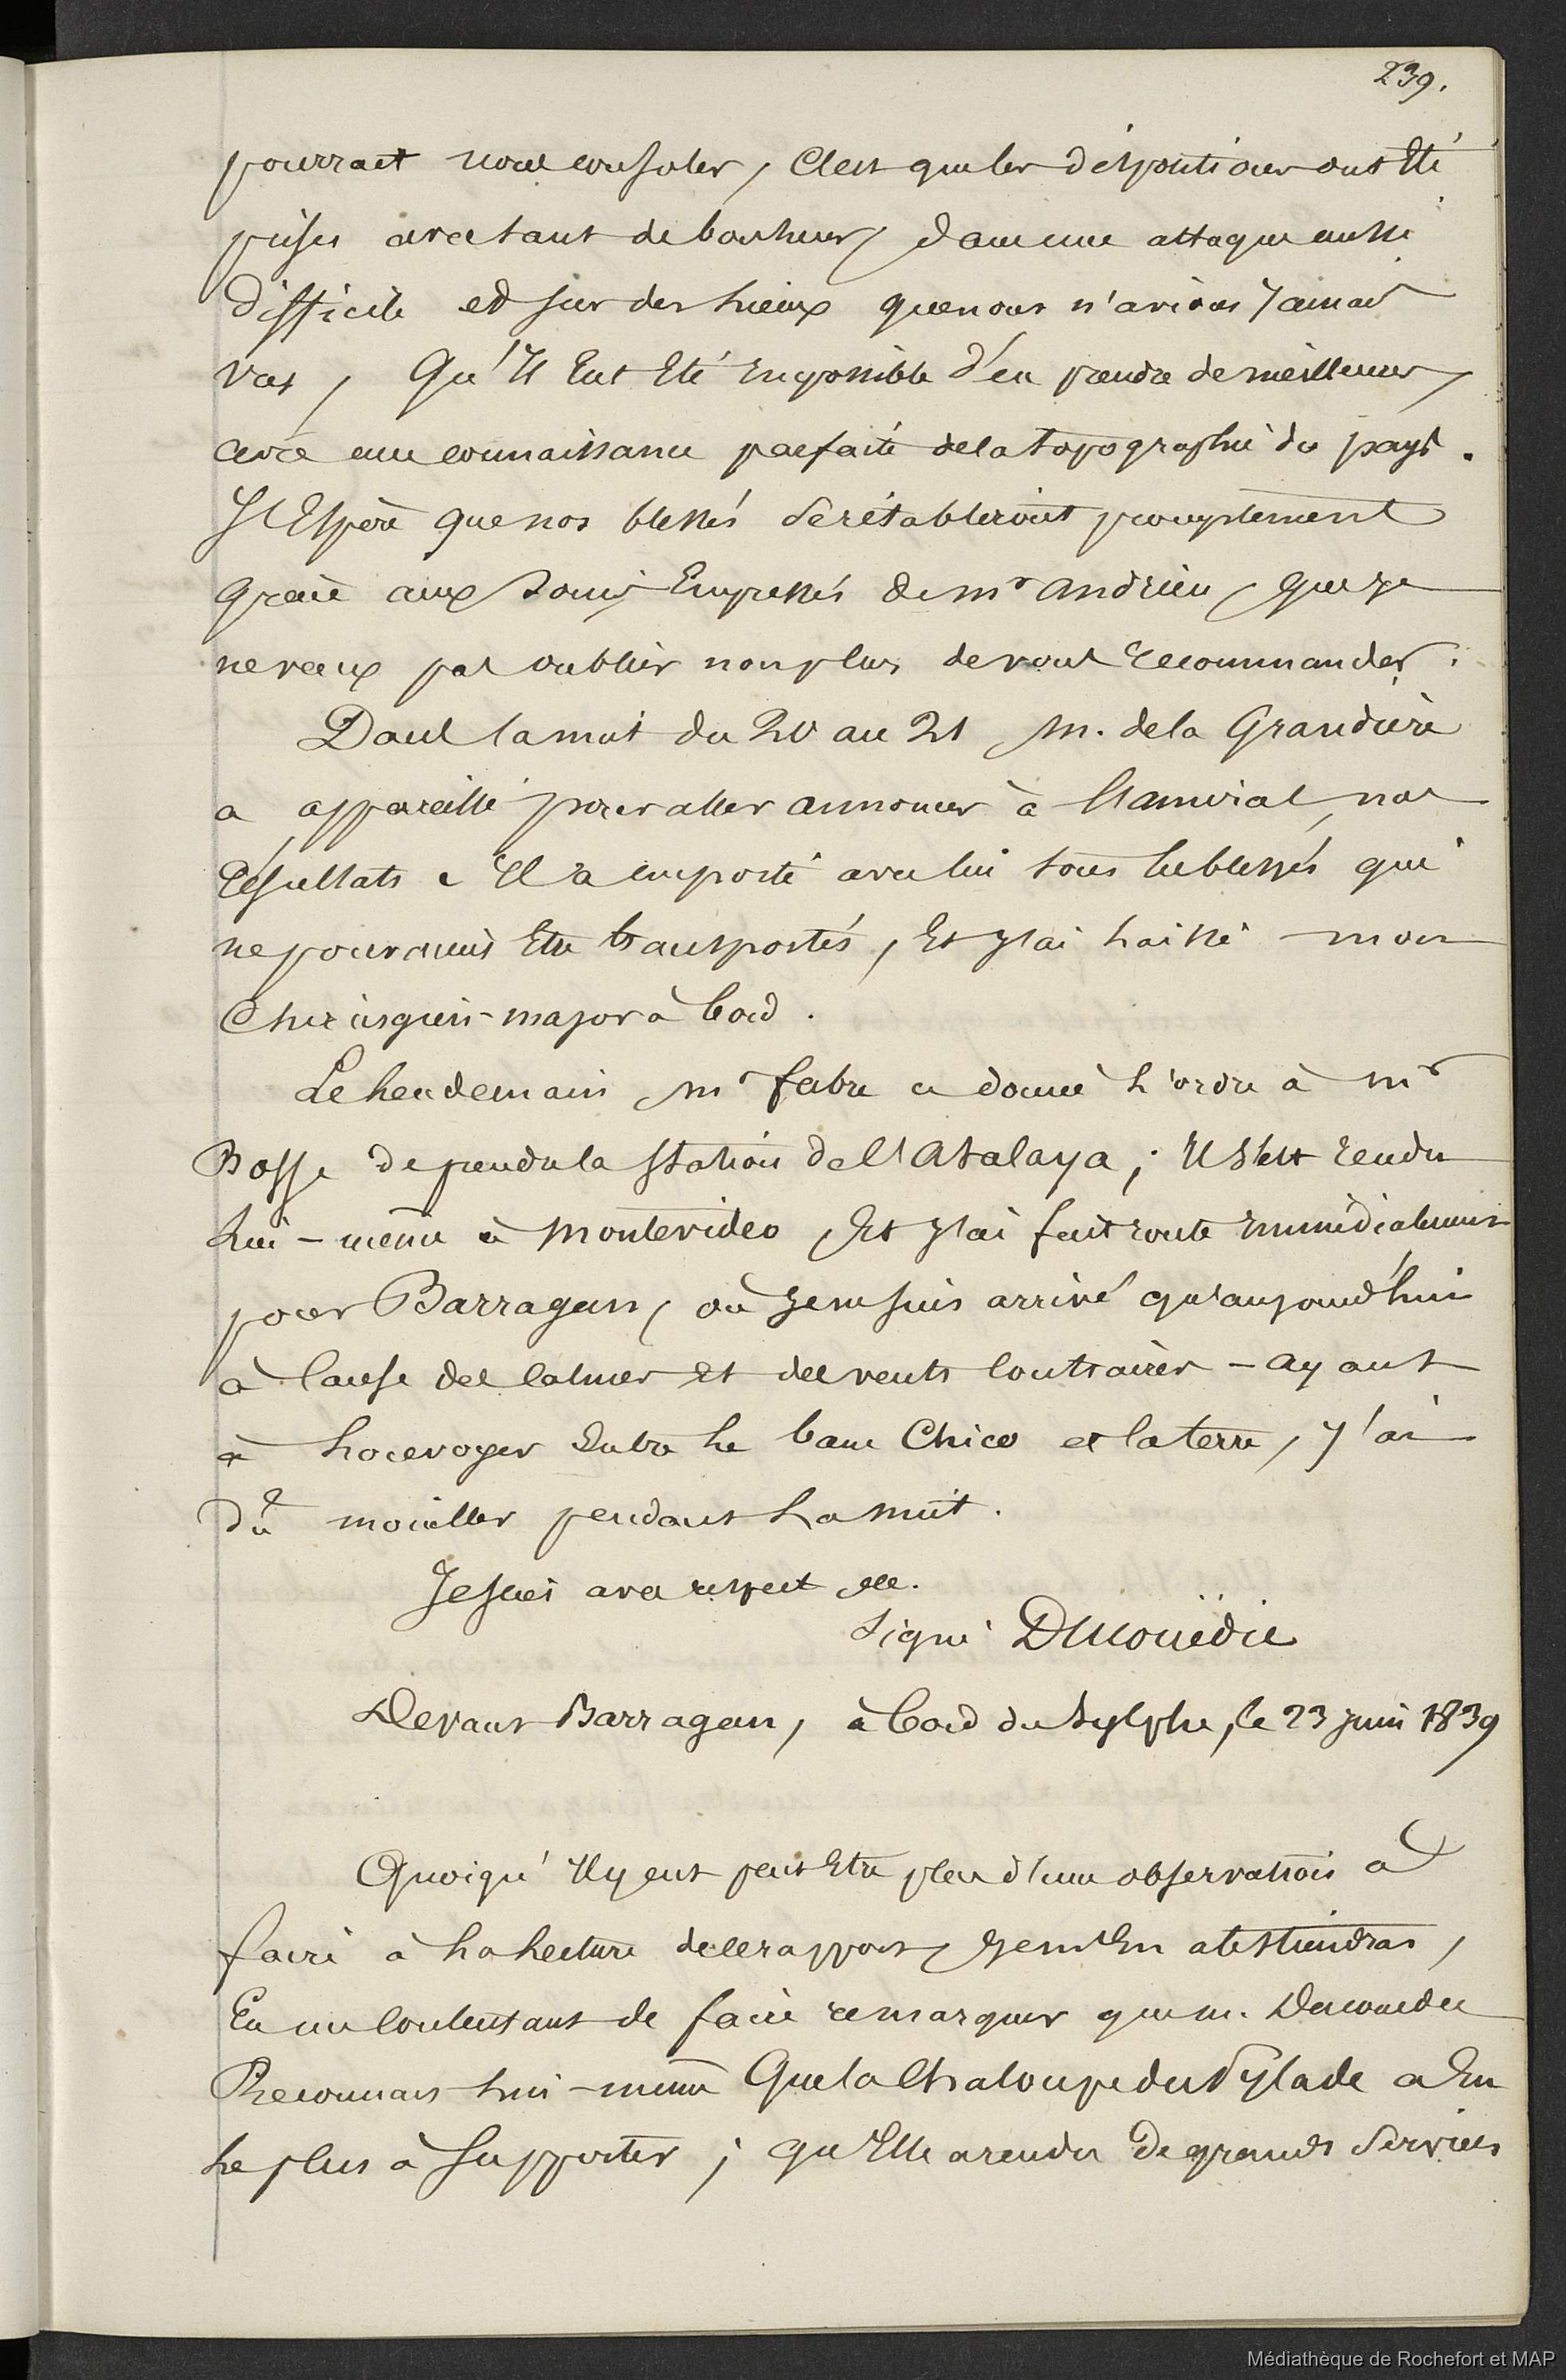 239.
pourrait nous consoler, C'est que les dispositions ont Eté
prises avec tant de bonheur, dans une attaque aussi
difficile et sur des lieux que nous n'avions Jamais
vus, Qu'Il Eut Eté Impossible d'en prendre de meilleures,
avec une connaissance parfaite de la topographie du pays.
J'Espère que nos blessés se rétabliront promptement
grâce aux soins Empressés de Mr Andrieu, que je
ne veux pas oublier non plus de vous recommander.
Dans la nuit du 20 au 21 M. de la Grandière
a appareillé pour aller annoncer à l'amiral, nos
résultats. Il a emporté avec lui tous les blessés qui
ne pouvaient Etre transportés, Et J'ai laissé mon
Chirurgien-major à bord.
Le lendemain Mr fabre a donné l'ordre à Mr
Bosse de prendre la station de l'Atalaya; Il s'est rendu
lui-même à Montevideo, Et J'ai fait route Immédiatement
pour Barragan, où Je ne suis arrivé qu'aujourd'hui
à cause des calmes Et des vents contraires - ayant
à louvoyer Entre le banc Chico et la terre, J'ai
dû mouiller pendant la nuit.
Je suis avec respect etc.
Signé Ducouëdic
Devant Barragan, à bord du Sylphe, le 23 Juin 1839
Quoiqu'Il y eut peut Etre plus d'une observation à
faire à la lecture de ce rapport, Je m'En abstiendrai,
En me contentant de faire remarquer que M. Ducouëdic
Reconnais lui-même Que la Chaloupe du Pylade a Eu
le plus à supporter; qu'Elle a rendu de grands services
Médiathèque de Rochefort et MAP